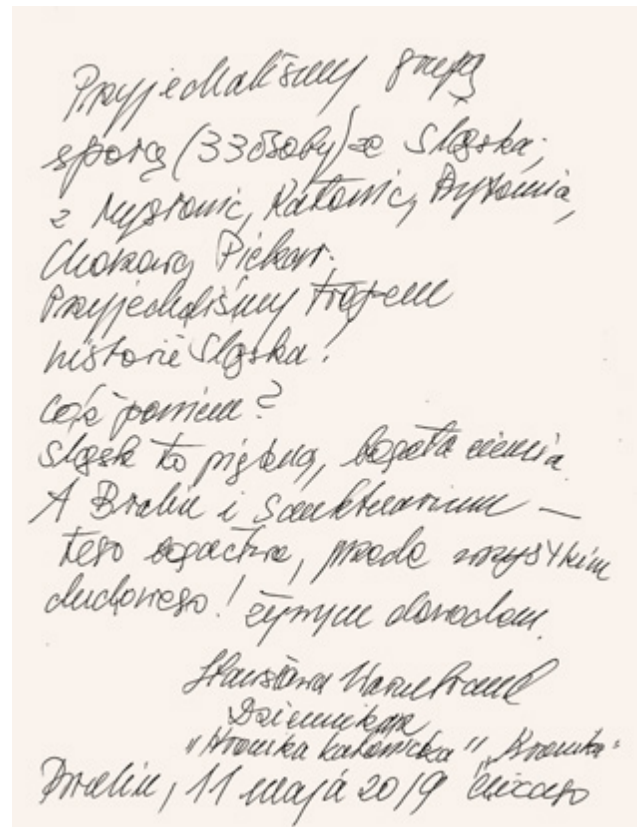 Przyjechaliśmy grupą
sporą (33 osoby) ze Śląska;
z Mysłowic, Katowic, Bytomia,
Chorzowa, Piekar.
Przyjechaliśmy tropem
historii Śląska!
Cóż powiem?
Śląsk to piękna, bogata ziemia.
A Bralin i Sanktuarium —
tego bogactwa, przede wszystkim
duchowego! żywym dowodem.
Stanisława
Dziennikarz
"Kronika katowicka" "Kronika
Bralin, 11 maja 2019